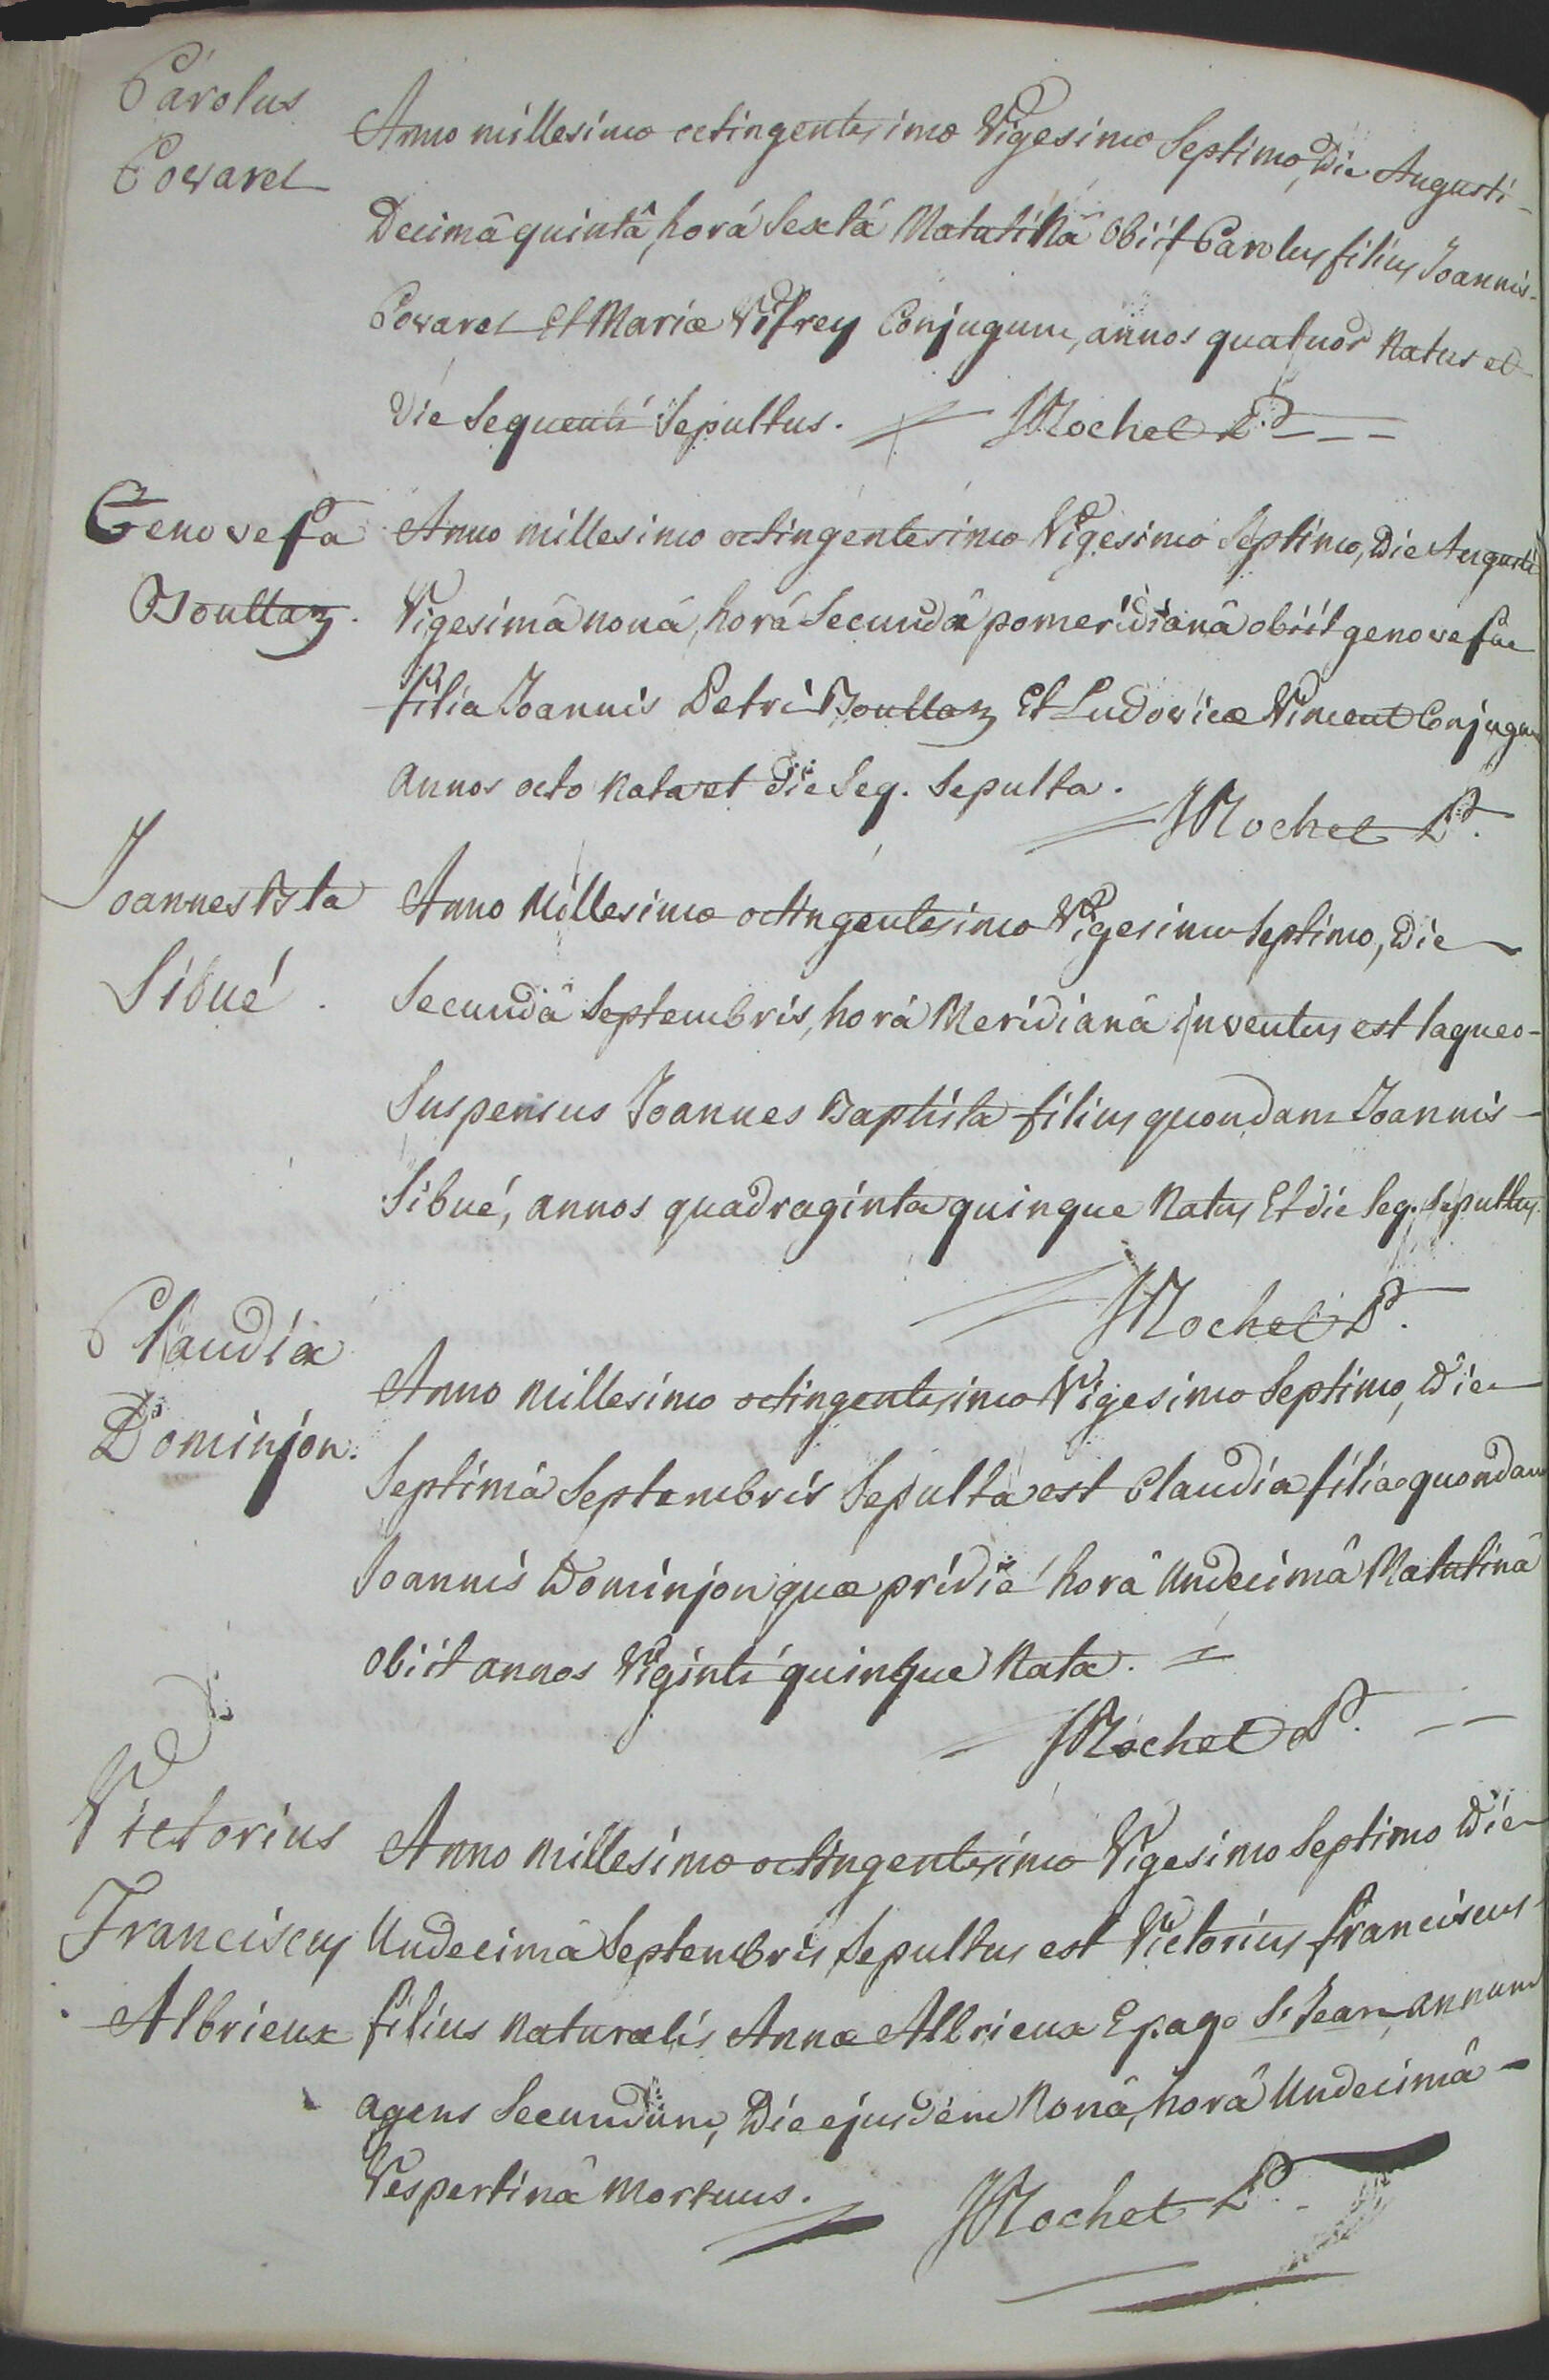 Carolus
Covarel
Anno millesimo octingentesimo Vigesimo Septimo, Die Augusti
Decimâ quintâ, horâ Sextâ Matutinâ obiit Carolus filius Joannis
Covarel Et Mariæ Vifrey Conjugum, annos quatuor Natus et
Die Sequenti Sepultus. Mochet P.
Genovefa
Boullaz.
Anno millesimo octingentesimo Vigesimo Septimo, Die Augusti
Vigesimâ nonâ, horâ Secundâ pomeridianâ obiit genovefa
filia Joannis Petri Boullaz Et Ludovicæ Vincent Conjugum
annos octo Nata et Die Seq. Sepulta.
Mochet P.
Joannes Bta
Sibué.
Anno Millesimo octingentesimo Vigesimo Septimo, Die
Secundâ Septembris, horâ Meridianâ inventus est laqueo
Suspensus Joannes Baptista filius quondam Joannis
Sibué, annos quadraginta quinque Natus Et die Seq. Sepultus.
Mochet P.
Claudia
Dominjon.
Anno Millesimo octingentesimo Vigesimo Septimo, Die
Septimâ Septembris Sepulta est Claudia filia quondam
Joannis Dominjon quæ pridie horâ Undecimâ Matutinâ
obiit annos Viginti quinque Nata.
Mochet P.
Victorius
Franciscus
Albrieux
Anno Millesimo octingentesimo Vigesimo Septimo Die
Undecimâ Septembris Sepultus est Victorius franciscus
filius Naturalis Annæ Albrieux E pago St Jean annum
agens Secundum, Die ejusdem Nonâ, horâ Undecimâ
Vespertinâ Mortuus. Mochet P.